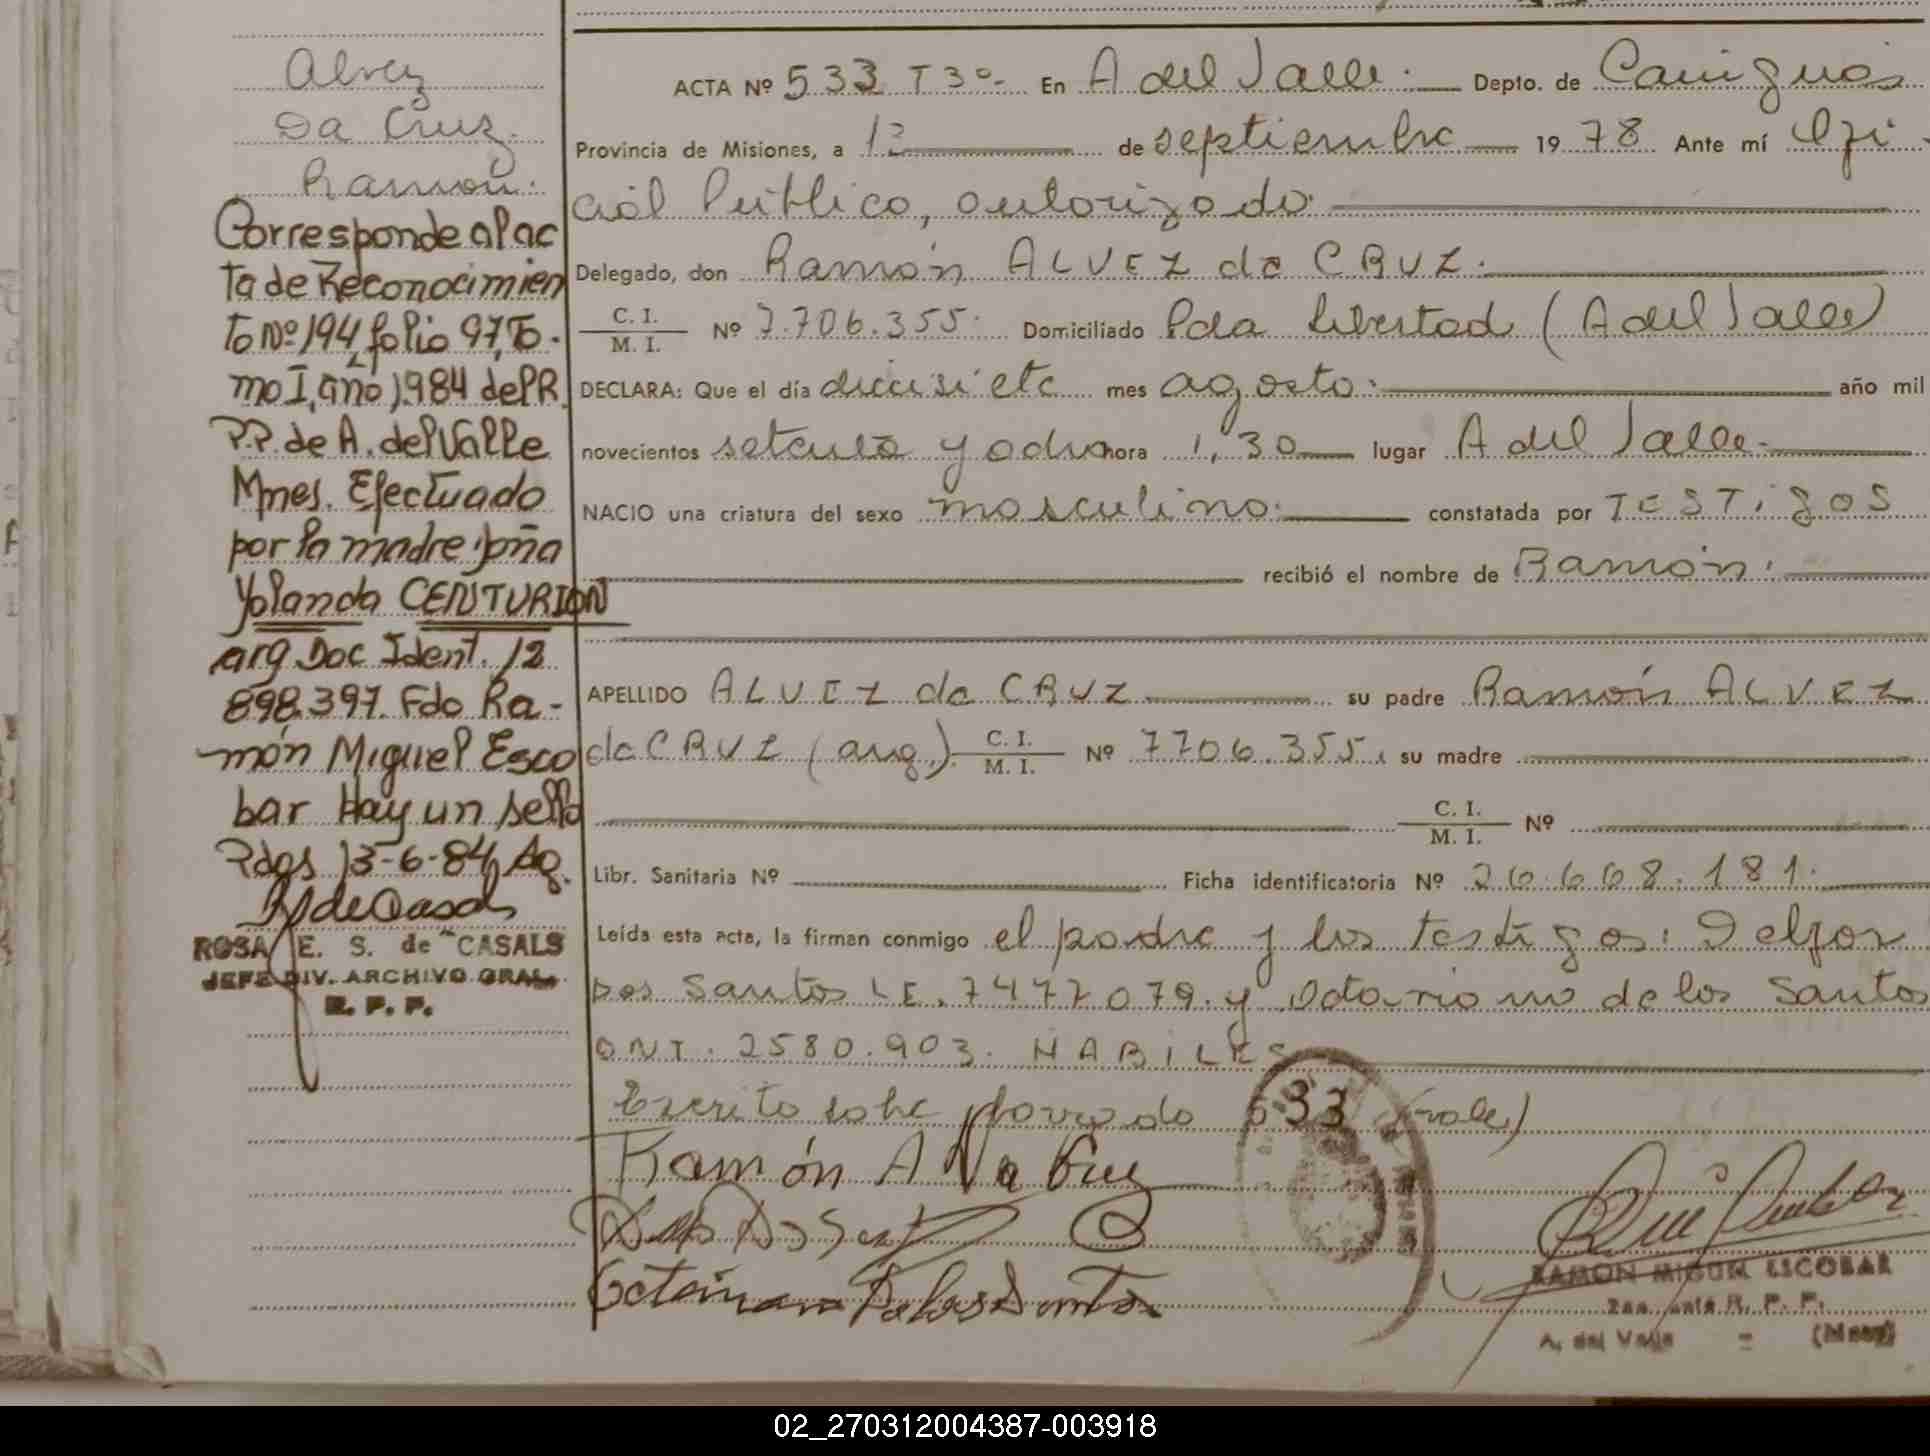 Alvez
Da Cruz
Ramón.
Corresponde al ac
ta de Reconocimien
to Nº 194, folio 97, To-
mo I, año 1.984 de PR.
P.P. de A. del Valle
Mnes. Efectuado
por la madre doña
Yolanda CENTURION
arg. Doc Ident. 12
898.397. Fdo Ra-
món Miguel Esco
bar Hay un sello
Pdas 13-6-84
RSdeCasals
ROSA E. S. de CASALS
JEFE DIV. ARCHIVO GRAL.
R. P. P.
ACTA Nº 533 T3º- En A del Valle. Depto. de Cainguás
Provincia de Misiones, a 12 de septiembre 1978 Ante mí Ofi
cial Público, autorizado.
Delegado, don Ramón ALVEZ da CRUZ.
C. I. / M. I. Nº 7.706.355. Domiciliado Pda Libertad (A del Valle)
DECLARA: Que el día diecisiete mes agosto. año mil
novecientos setenta y ocho hora 1,30 lugar A del Valle.
NACIO una criatura del sexo masculino. constatada por TESTigos
recibió el nombre de Ramón.
APELLIDO ALVEZ da CRUZ su padre Ramón ALVEZ
da CRUZ (arg.) C. I. / M. I. Nº 7706.355. su madre
C. I. / M. I. Nº
Libr. Sanitaria Nº Ficha identificatoria Nº 26.668.181.
Leída esta acta, la firman conmigo el padre y los testigos: Delfor
Dos Santos LE. 7477079. y Octaviano de los Santos
DNI. 2580.903. HABILES
Escrito sobre borrado 533 (vale)
Ramón A Va Cruz
Octaviano De los Santos
RAMON MIGUEL ESCOBAR
R. P. P.
A. del Valle - (Mnes)
02_270312004387-003918